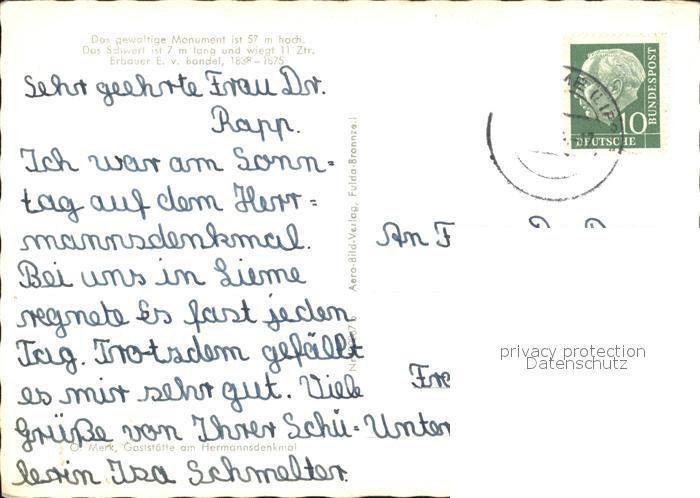 Das gewaltige Monument ist 57 m hoch.
Das Schwert ist 7 m lang und wiegt 11 Ztr.
Erbauer E. v. Bandel, 1838–1875
Sehr geehrte Frau Dr.
Rapp.
Ich war am Sonn=
tag auf dem Herr=
mannsdenkmal.
Bei uns in Lieme
regnete Es fast jeden
Tag. Trotsdem gefällt
es mir sehr gut. Viele
Grüße von Ihrer Schü=
lerin Isa Schmelter.
O. Merk, Gaststätte am Hermannsdenkmal
Aero-Bild-Verlag, Fulda-Bronnzell
An F
Fre
Unter
10
DEUTSCHE
BUNDESPOST
privacy protection
Datenschutz